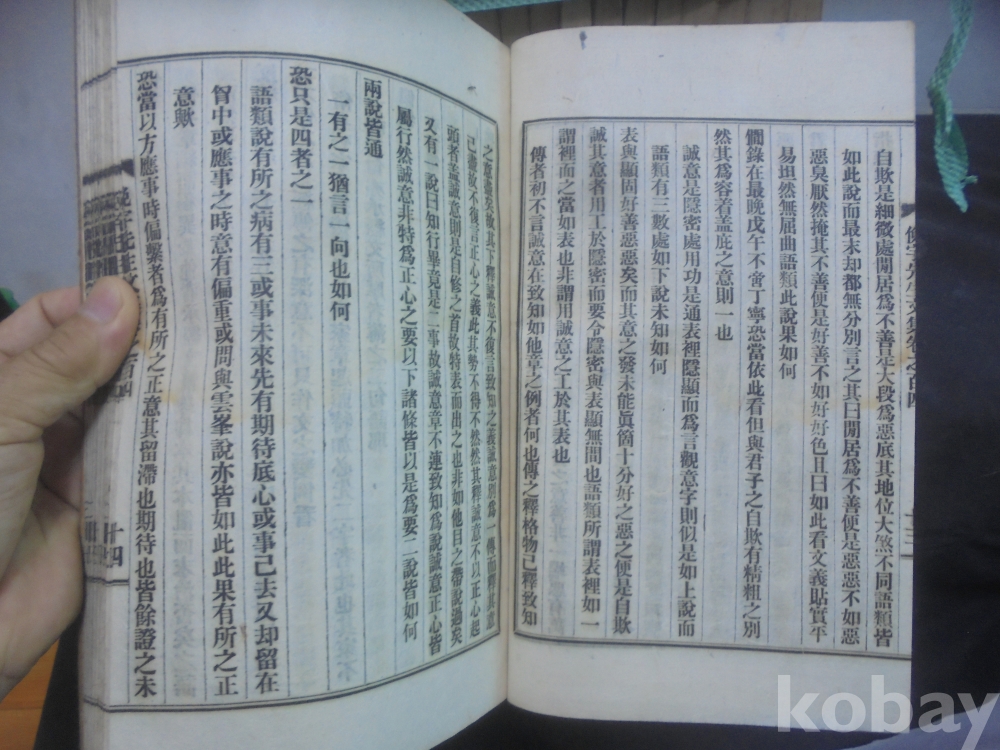 自欺是細微處閒居爲不善是大段爲惡底其地位大煞不同語類皆
如此說而最末却都無分別言之其曰閒居爲不善便是惡惡不如惡
惡臭厭然掩其不善便是好善不如好好色且曰如此看文義貼實平
易坦然無屈曲語類此說果如何
僩錄在最晩戊午不舍丁寧恐當依此看但與君子之自欺有精粗之別
然其爲容着蓋庇之意則一也
誠意是隱密處用功是通表裡隱顯而爲言觀意字則似是如上說而
語類有三數處如下說未知如何
表與顯固好善惡惡矣而其意之發未能眞箇十分好之惡之便是自欺
誠其意者用工於隱密而要令隱密與表顯無間也語類所謂表裡如一
謂裡面之當如表也非謂用誠意之工於其表也
傳者初不言誠意在致知如他章之例者何也傳之釋格物已釋致知
之意盡矣故其下釋誠意不復言致知之義誠意別爲一傳而釋其意
已盡故不復言正心之義此其勢不得不然然其釋誠意不以正心起
頭者蓋誠意則是自修之首故特表而出之也非如他目之帶說過矣
又有一說曰知行畢竟是二事故誠意章不連致知爲說誠意正心皆
屬行然誠意非特爲正心之要以下諸條皆以是爲要二說皆如何
兩說皆通
一有之一猶言一向也如何
恐只是四者之一
語類說有所之病有三或事未來先有期待底心或事已去又却留在
胷中或應事之時意有偏重或問與雲峯說亦皆如此此果有所之正
意歟
恐當以方應事時偏繫者爲有所之正意其留滯也期待也皆餘證之未
十三
十四
kobay